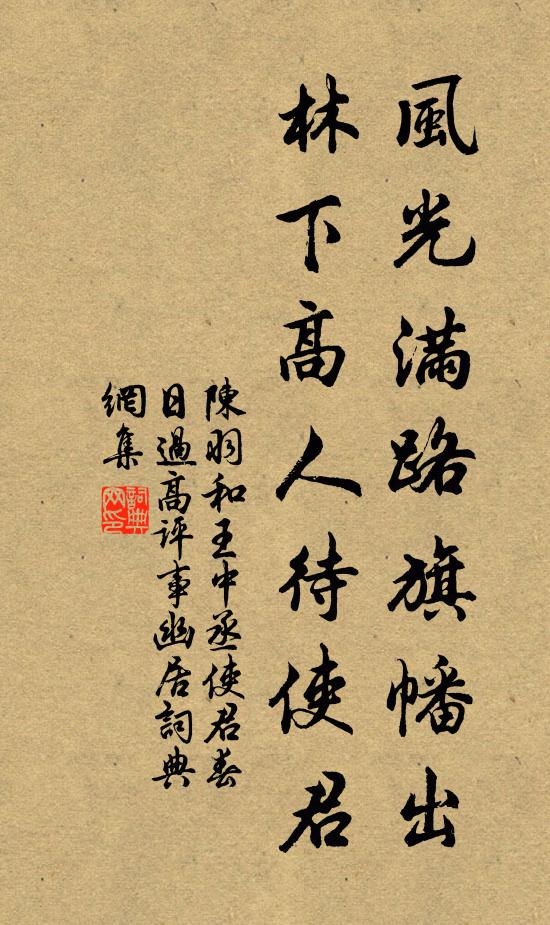 風光滿路旗幡出
林下高人待使君
陳羽和王中丞使君春
日過高評事幽居詞典
網集
詞典
网印